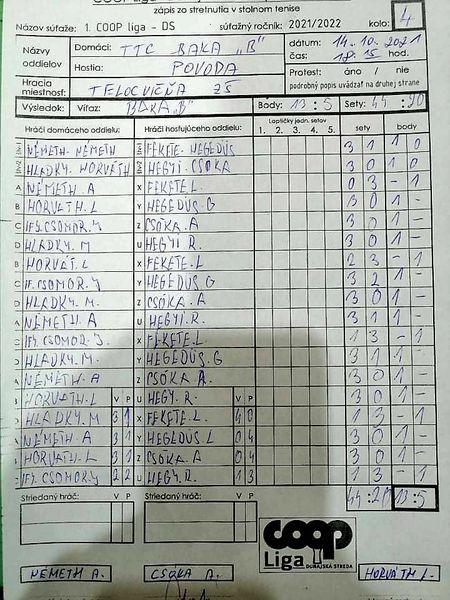 zápis zo stretnutia v stolnom tenise
Názov súťaže: 1. COOP liga - DS súťažný ročník: 2021/2022 kolo: 4
Názvy oddielov Domáci: TTC BAKA „B" dátum: 14.10.2021
Hostia: POVODA čas: 18:15 hod.
Hracia miestnosť: TELOCVIČŇA ZŠ Protest: áno / nie
podrobný popis uvádzať na druhej strane
Výsledok: Víťaz: BAKA „B" Body: 13:5 Sety: 44:20
Hráči domáceho oddielu: Hráči hosťujúceho oddielu: Loptičky jedn. setov: sety body
1. 2. 3. 4. 5.
NÉMETH. NÉMETH FEKETE. HEGEDÜS 3 1 1 0
HLADKY. HORVÁTH HEGYI. CSÓKA 3 0 1 0
A NÉMETH. A X FEKETE. L 0 3 - 1
B HORVATH. L Y HEGEDÜS. G 3 0 1 -
C IFJ. CSOMOR. J Z CSÓKA. A 3 0 1 -
D HLADKY. M U HEGYI. R 3 0 1 -
B HORVÁT. L X FEKETE. L 2 3 - 1
C IFJ. CSOMOR. J Y HEGEDÜS. G 3 2 1 -
D HLADKY. M. Z CSÓKA. A 3 0 1 -
A NÉMETH. A U HEGYI. R. 3 1 1 -
C IFJ. CSOMOR. J. X FEKETE. L 1 3 - 1
D HLADKY. M. Y HEGEDÜS. G 3 1 1 -
A NÉMETH. A Z CSÓKA. A. 3 0 1 -
B HORVATH. L V P U HEGY. R. V P 3 0 1 -
D HLADKY. M 3 1 X FEKETE. L. 4 0 1 3 - 1
A NÉMETH. A 3 1 Y HEGEDÜS. L 0 4 3 0 1 -
B HORVATH. L 3 1 Z CSÓKA. A 0 4 3 0 1 -
C IFJ. CSOMOR. J 2 2 U HEGY. R. 1 3 1 3 - 1
Striedaný hráč: V P Striedaný hráč: V P 44:20 13:5
coop
Liga
DUNAJSKÁ STREDA
NÉMETH A. CSÓKA A. HORVÁTH L.